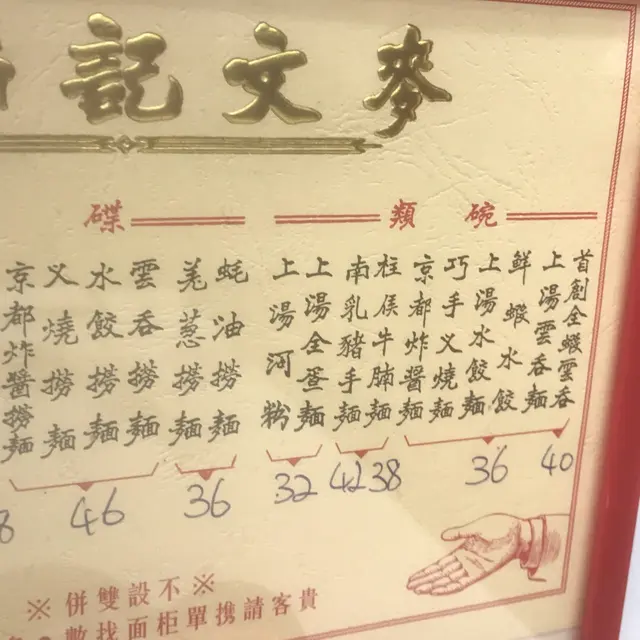 麥文記
碗類
首創全蝦雲吞
上湯雲吞麵
鮮蝦水餃
上湯水餃麵
巧手义燒麵
京都炸醬麵
柱侯牛腩麵
南乳豬手麵
上湯全蛋麵
上湯河粉
40
36
38
42
32
碟
蚝油撈麵
羌葱撈麵
雲吞撈麵
水餃撈麵
义燒撈麵
京都炸醬撈麵
36
46
8
※不設雙併※
貴客請携單面柜找數